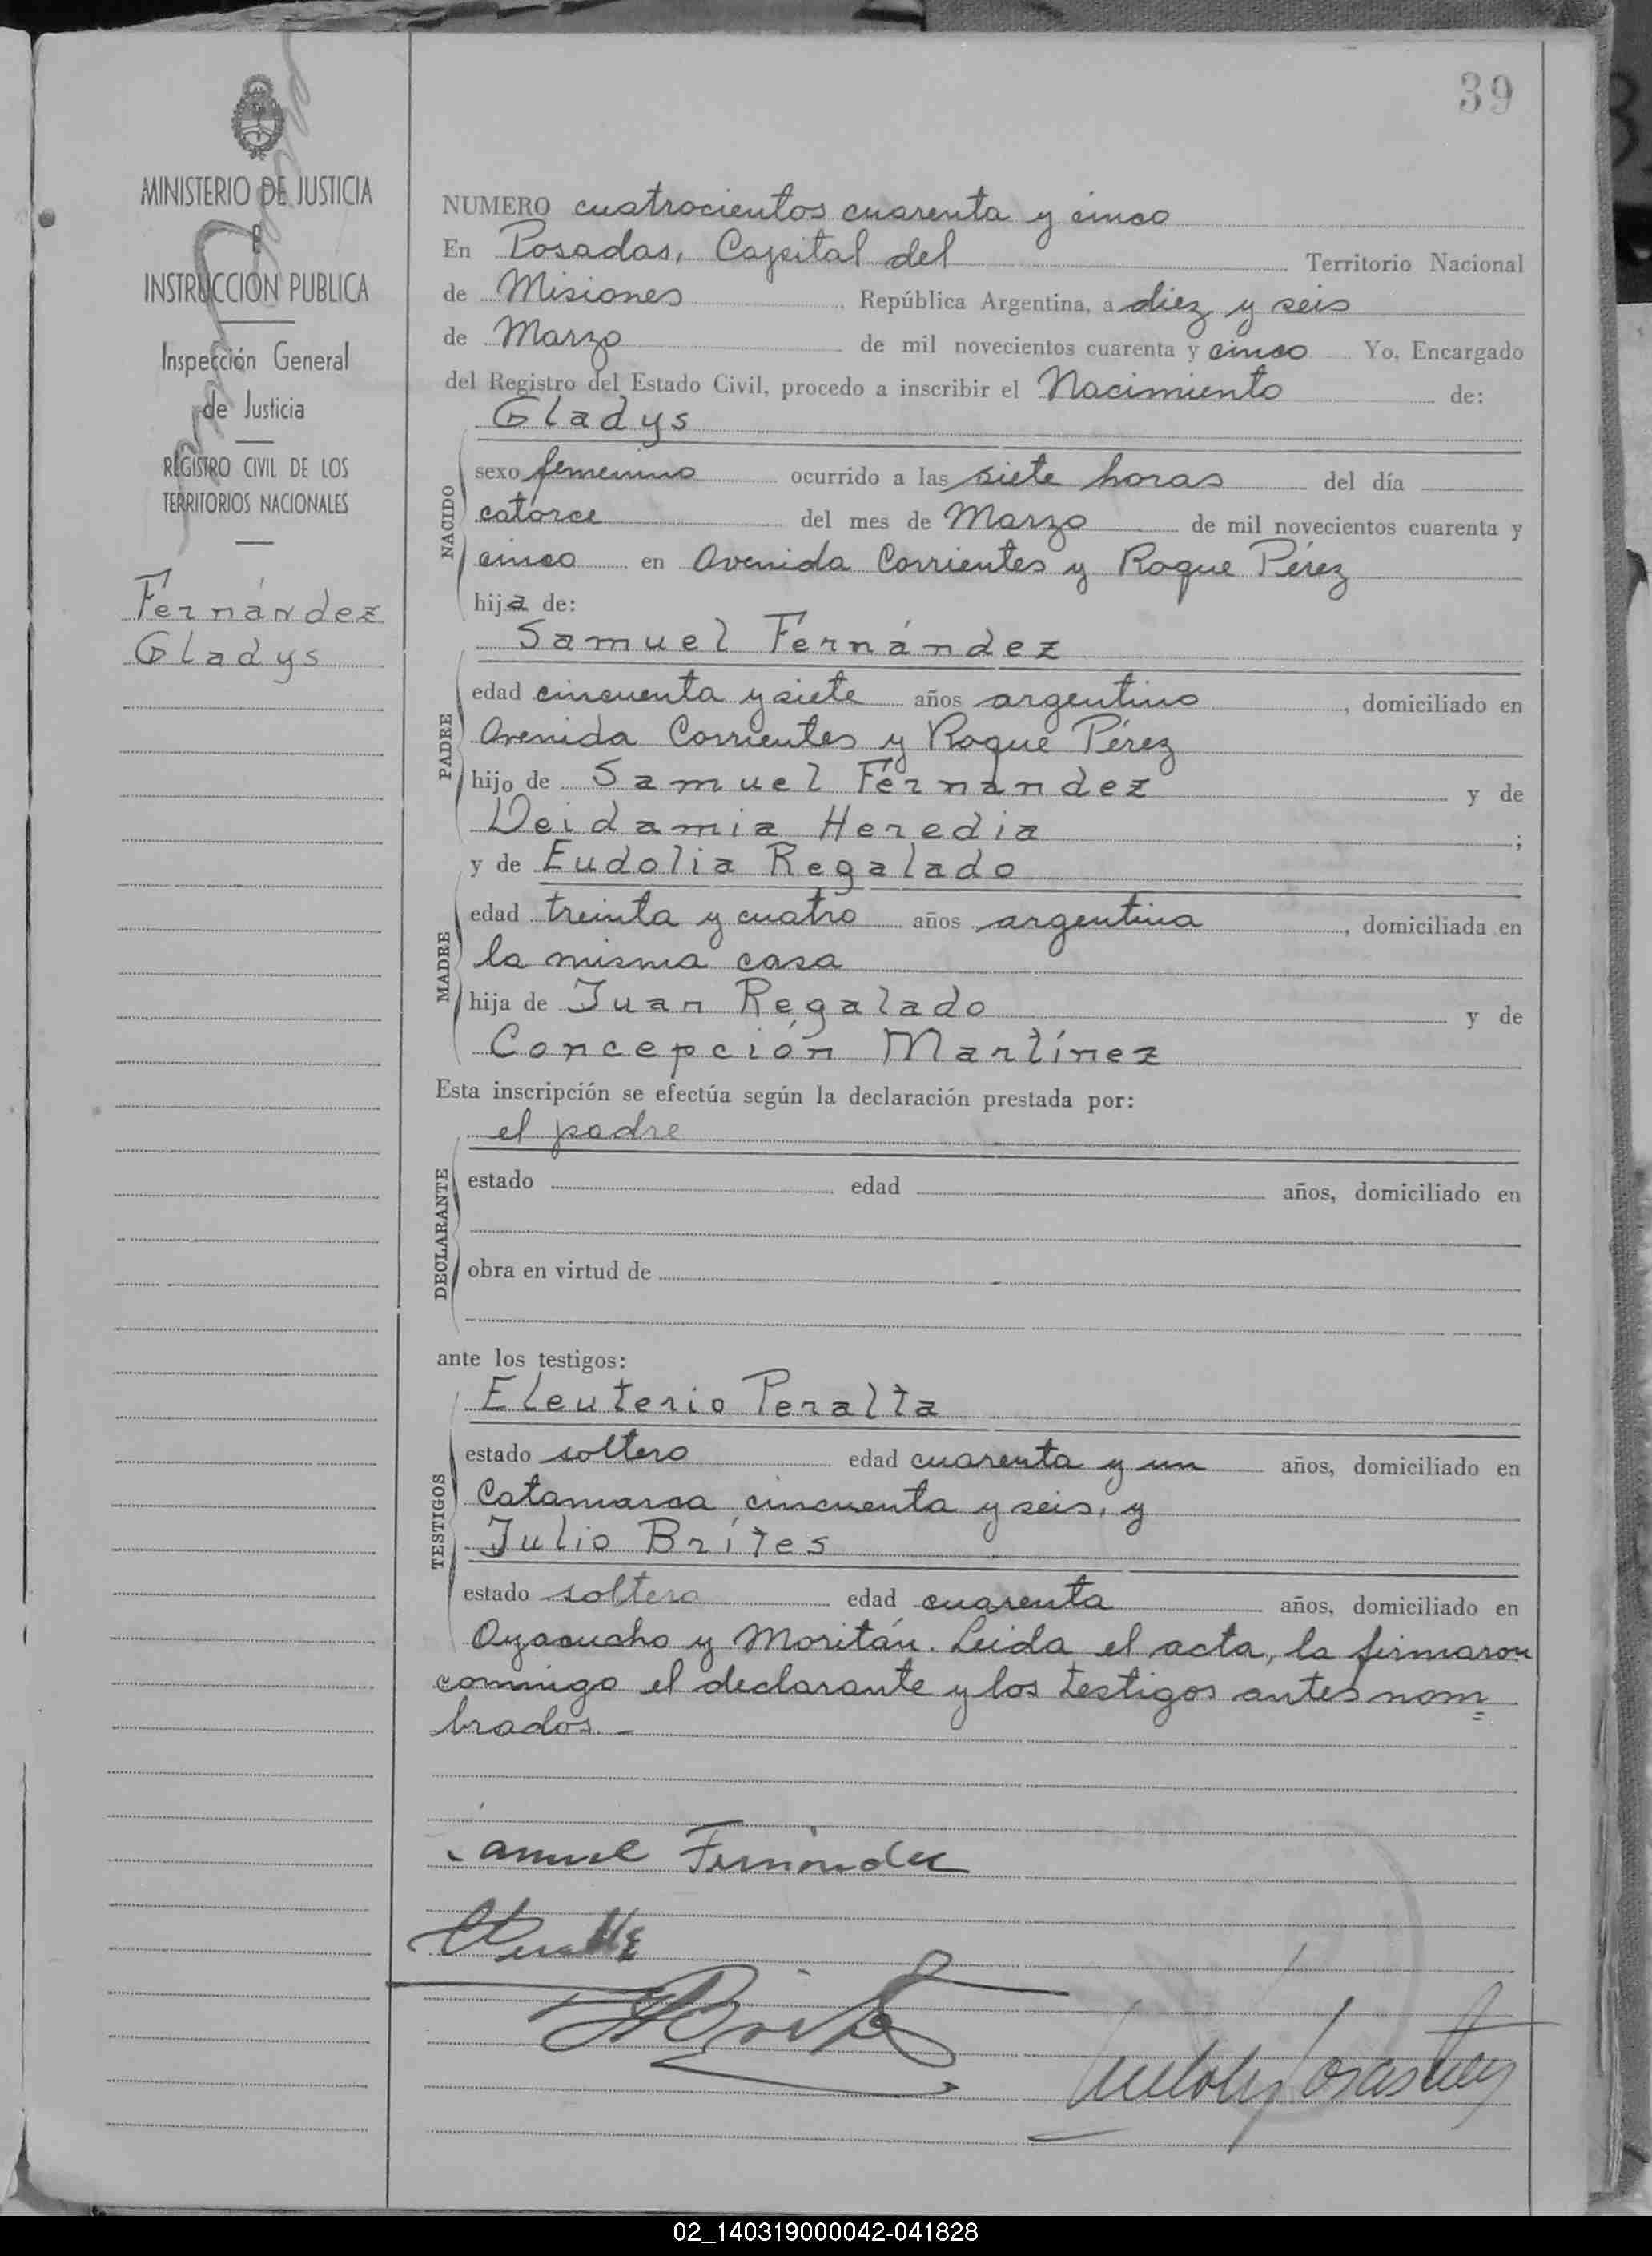 39
MINISTERIO DE JUSTICIA
E
INSTRUCCION PUBLICA
Inspección General
de Justicia
REGISTRO CIVIL DE LOS
TERRITORIOS NACIONALES
Fernández
Gladys
NUMERO cuatrocientos cuarenta y cinco
En Posadas, Capital del Territorio Nacional
de Misiones República Argentina, a diez y seis
de Marzo de mil novecientos cuarenta y cinco Yo, Encargado
del Registro del Estado Civil, procedo a inscribir el Nacimiento de:
Gladys
NACIDO
sexo femenino ocurrido a las siete horas del día
catorce del mes de Marzo de mil novecientos cuarenta y
cinco en Avenida Corrientes y Roque Pérez
hija de:
Samuel Fernández
PADRE
edad cincuenta y siete años argentino, domiciliado en
Avenida Corrientes y Roque Pérez
hijo de Samuel Fernández y de
Deidamia Heredia ;
y de Eudolia Regalado
MADRE
edad treinta y cuatro años argentina, domiciliada en
la misma casa
hija de Juan Regalado y de
Concepción Martínez
Esta inscripción se efectúa según la declaración prestada por:
el padre
DECLARANTE
estado edad años, domiciliado en
obra en virtud de
ante los testigos:
Eleuterio Peralta
TESTIGOS
estado soltero edad cuarenta y un años, domiciliado en
Catamarca cincuenta y seis, y
Julio Brítes
estado soltero edad cuarenta años, domiciliado en
Ayacucho y Moritán. Leida el acta, la firmaron
conmigo el declarante y los testigos antes nom=
brados.-
Samuel Fernández
02_140319000042-041828